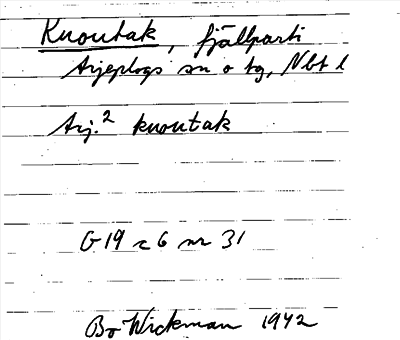 Kuoutak, fjällparti
Arjeplogs sn o tg, Nbt l
Arj.² kuoutak
G 19 c 6 nr 31
Bo Wickman 1942